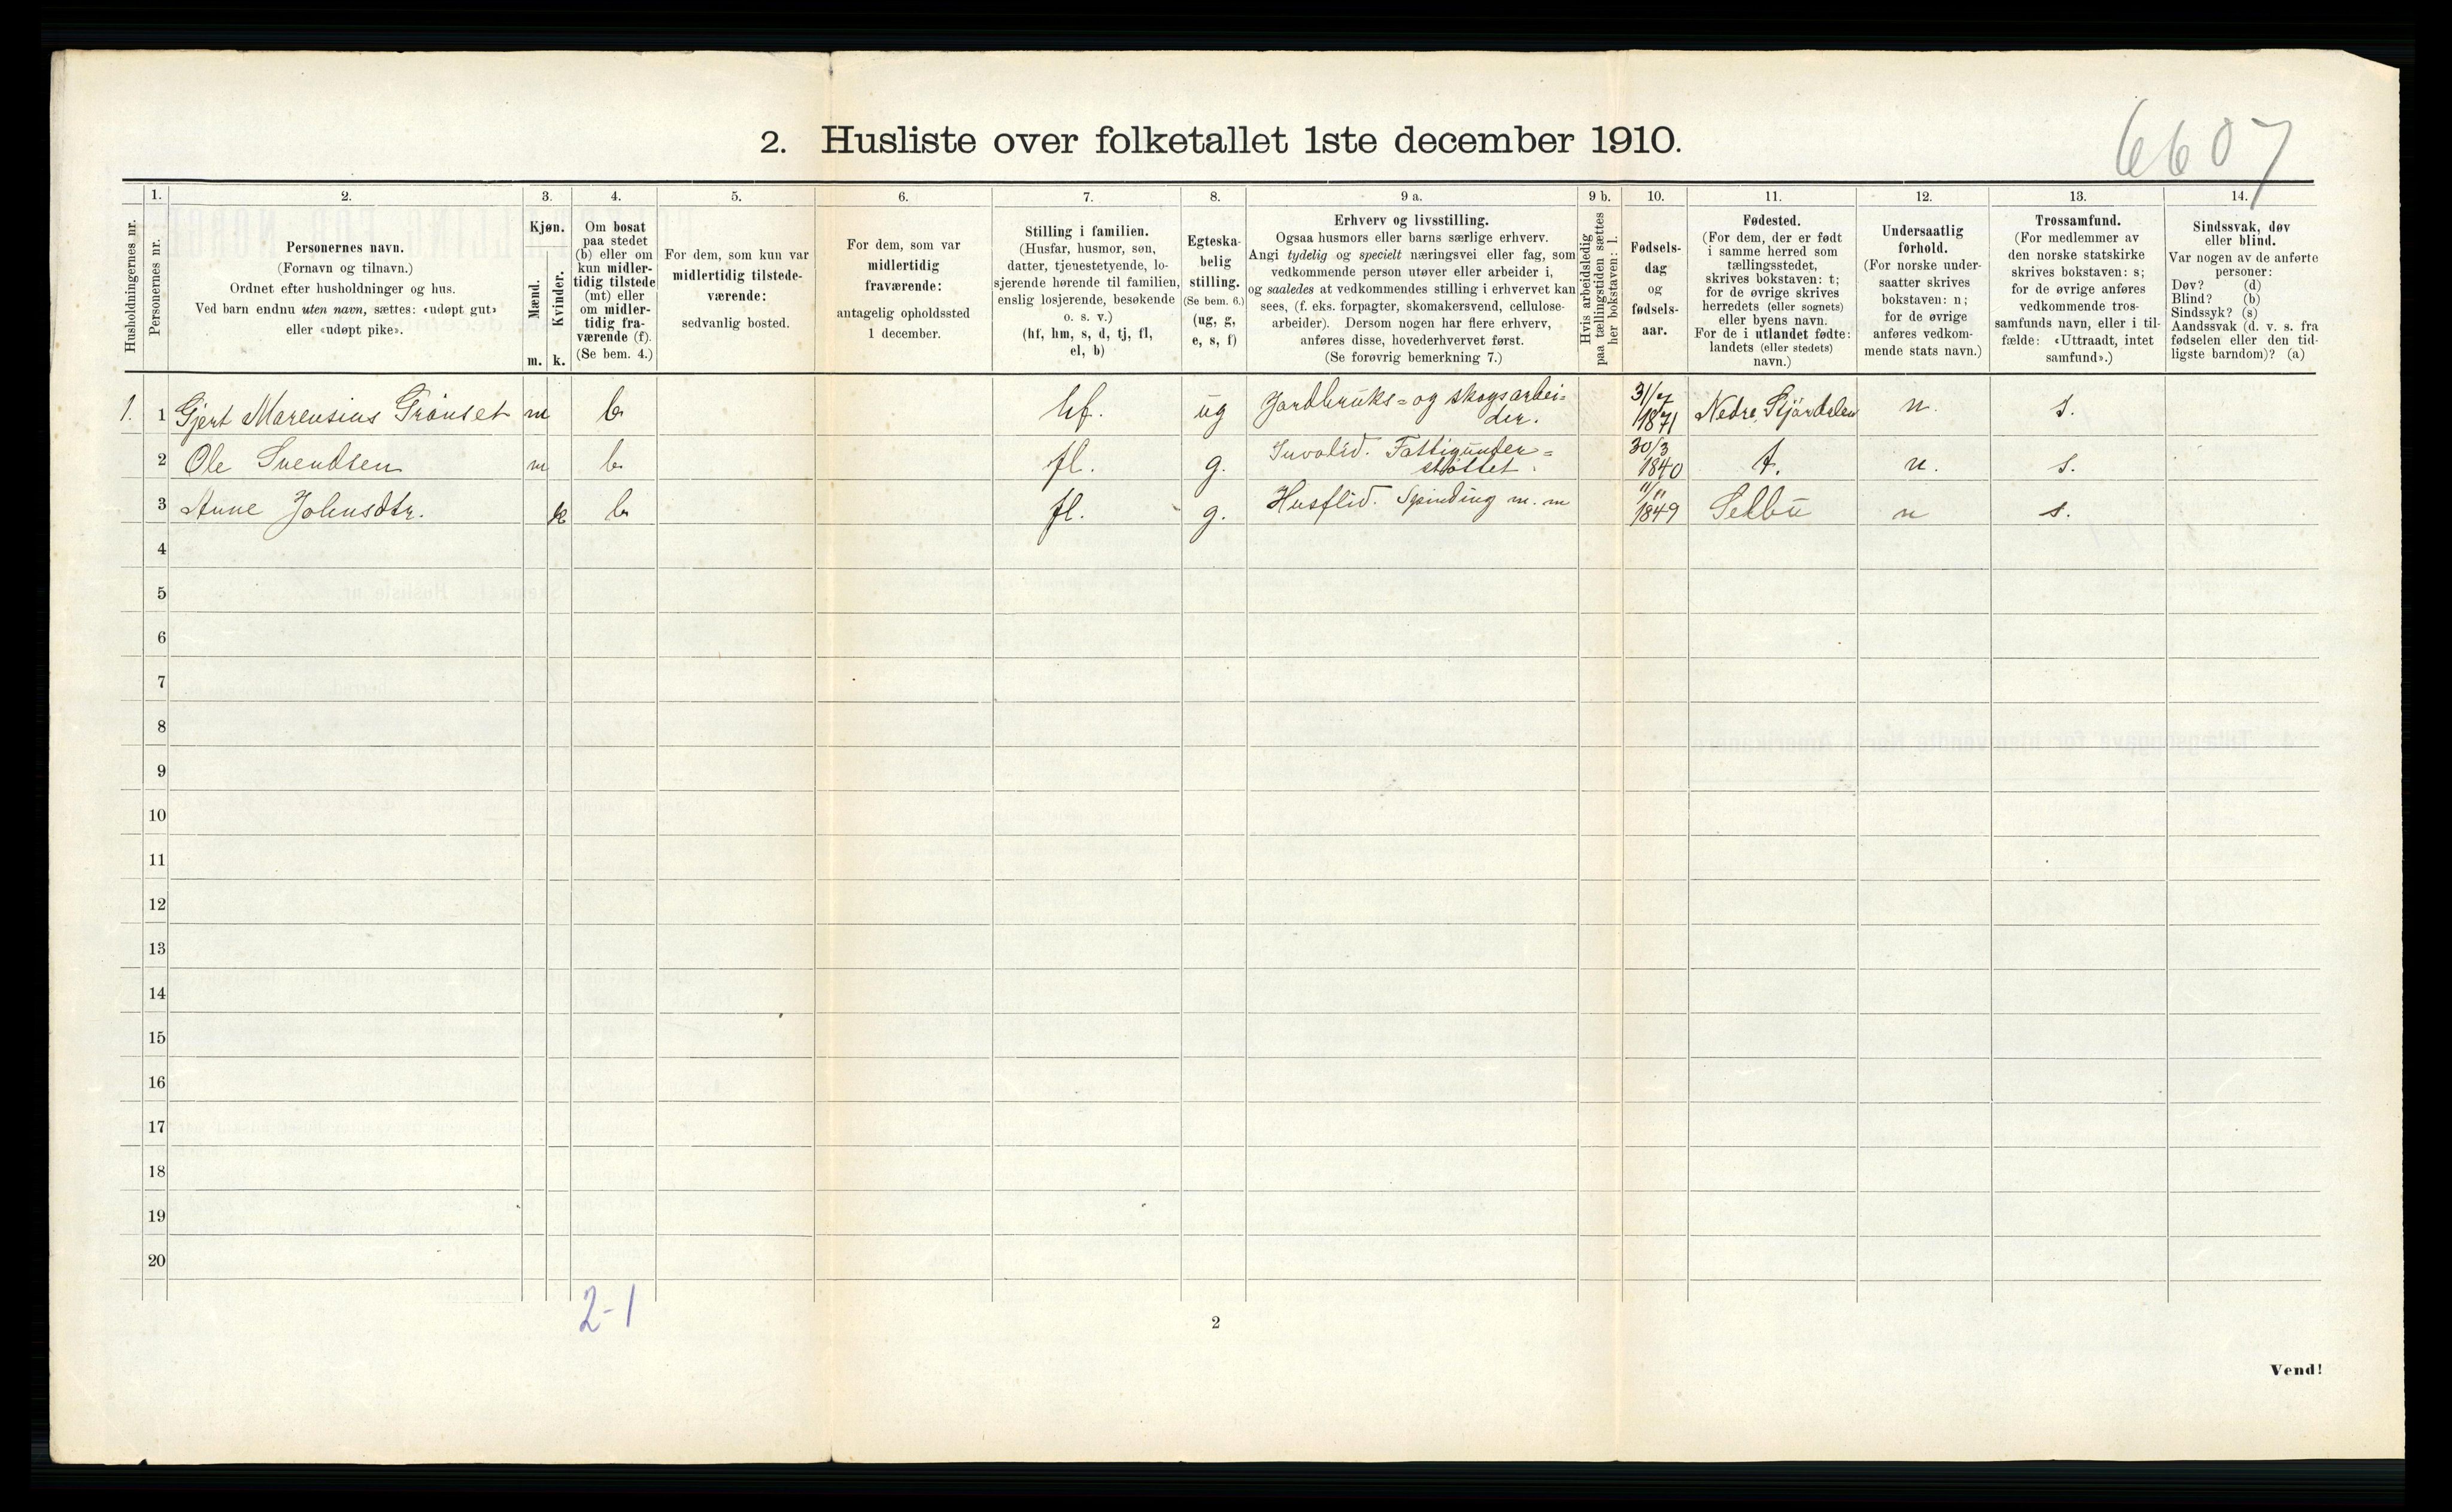 6607
2. Husliste over folketallet 1ste december 1910.
Husholdningernes nr.
1.
Personernes nr.
2.
Personernes navn.
(Fornavn og tilnavn.)
Ordnet efter husholdninger og hus.
Ved barn endnu uten navn, sættes: «udøpt gut»
eller «udøpt pike».
3.
Kjøn.
Mænd.
Kvinder.
m. k.
4.
Om bosat
paa stedet
(b) eller om
kun midler-
tidig tilstede
(mt) eller
om midler-
tidig fra-
værende (f).
(Se bem. 4.)
5.
For dem, som kun var
midlertidig tilstede-
værende:
sedvanlig bosted.
6.
For dem, som var
midlertidig
fraværende:
antagelig opholdssted
1 december.
7.
Stilling i familien.
(Husfar, husmor, søn,
datter, tjenestetyende, lo-
sjerende hørende til familien,
enslig losjerende, besøkende
o. s. v.)
(hf, hm, s, d, tj, fl,
el, b)
8.
Egteska-
belig
stilling.
(Se bem. 6.)
(ug, g,
e, s, f)
9 a.
Erhverv og livsstilling.
Ogsaa husmors eller barns særlige erhverv.
Angi tydelig og specielt næringsvei eller fag, som
vedkommende person utøver eller arbeider i,
og saaledes at vedkommendes stilling i erhvervet kan
sees, (f. eks. forpagter, skomakersvend, cellulose-
arbeider). Dersom nogen har flere erhverv,
anføres disse, hovederhvervet først.
(Se forøvrig bemerkning 7.)
9 b.
Hvis arbeidsledig
paa tællingstiden sættes
her bokstaven: l.
10.
Fødsels-
dag
og
fødsels-
aar.
11.
Fødested.
(For dem, der er født
i samme herred som
tællingsstedet,
skrives bokstaven: t;
for de øvrige skrives
herredets (eller sognets)
eller byens navn.
For de i utlandet fødte:
landets (eller stedets)
navn.)
12.
Undersaatlig
forhold.
(For norske under-
saatter skrives
bokstaven: n;
for de øvrige
anføres vedkom-
mende stats navn.)
13.
Trossamfund.
(For medlemmer av
den norske statskirke
skrives bokstaven: s;
for de øvrige anføres
vedkommende tros-
samfunds navn, eller i til-
fælde: «Uttraadt, intet
samfund».)
14.
Sindssvak, døv
eller blind.
Var nogen av de anførte
personer:
Døv? (d)
Blind? (b)
Sindssyk? (s)
Aandssvak (d. v. s. fra
fødselen eller den tid-
ligste barndom)? (a)
1. 1 Gjert Marensius Grönset m b hf. ug Jordbruks= og skogsarbei=
der. 31/7
1871 Nedre Stjördalen n. s.
2 Ole Svendsen m b fl. g. Invalid. Fattigunder=
støttet. 30/3
1840 t. n. s.
3 Anne Johnsdtr. k b fl. g. Husflid. Spinding m. m 11/11
1849 Selbu n s.
4
5
6
7
8
9
10
11
12
13
14
15
16
17
18
19
20
2-1
2
Vend!